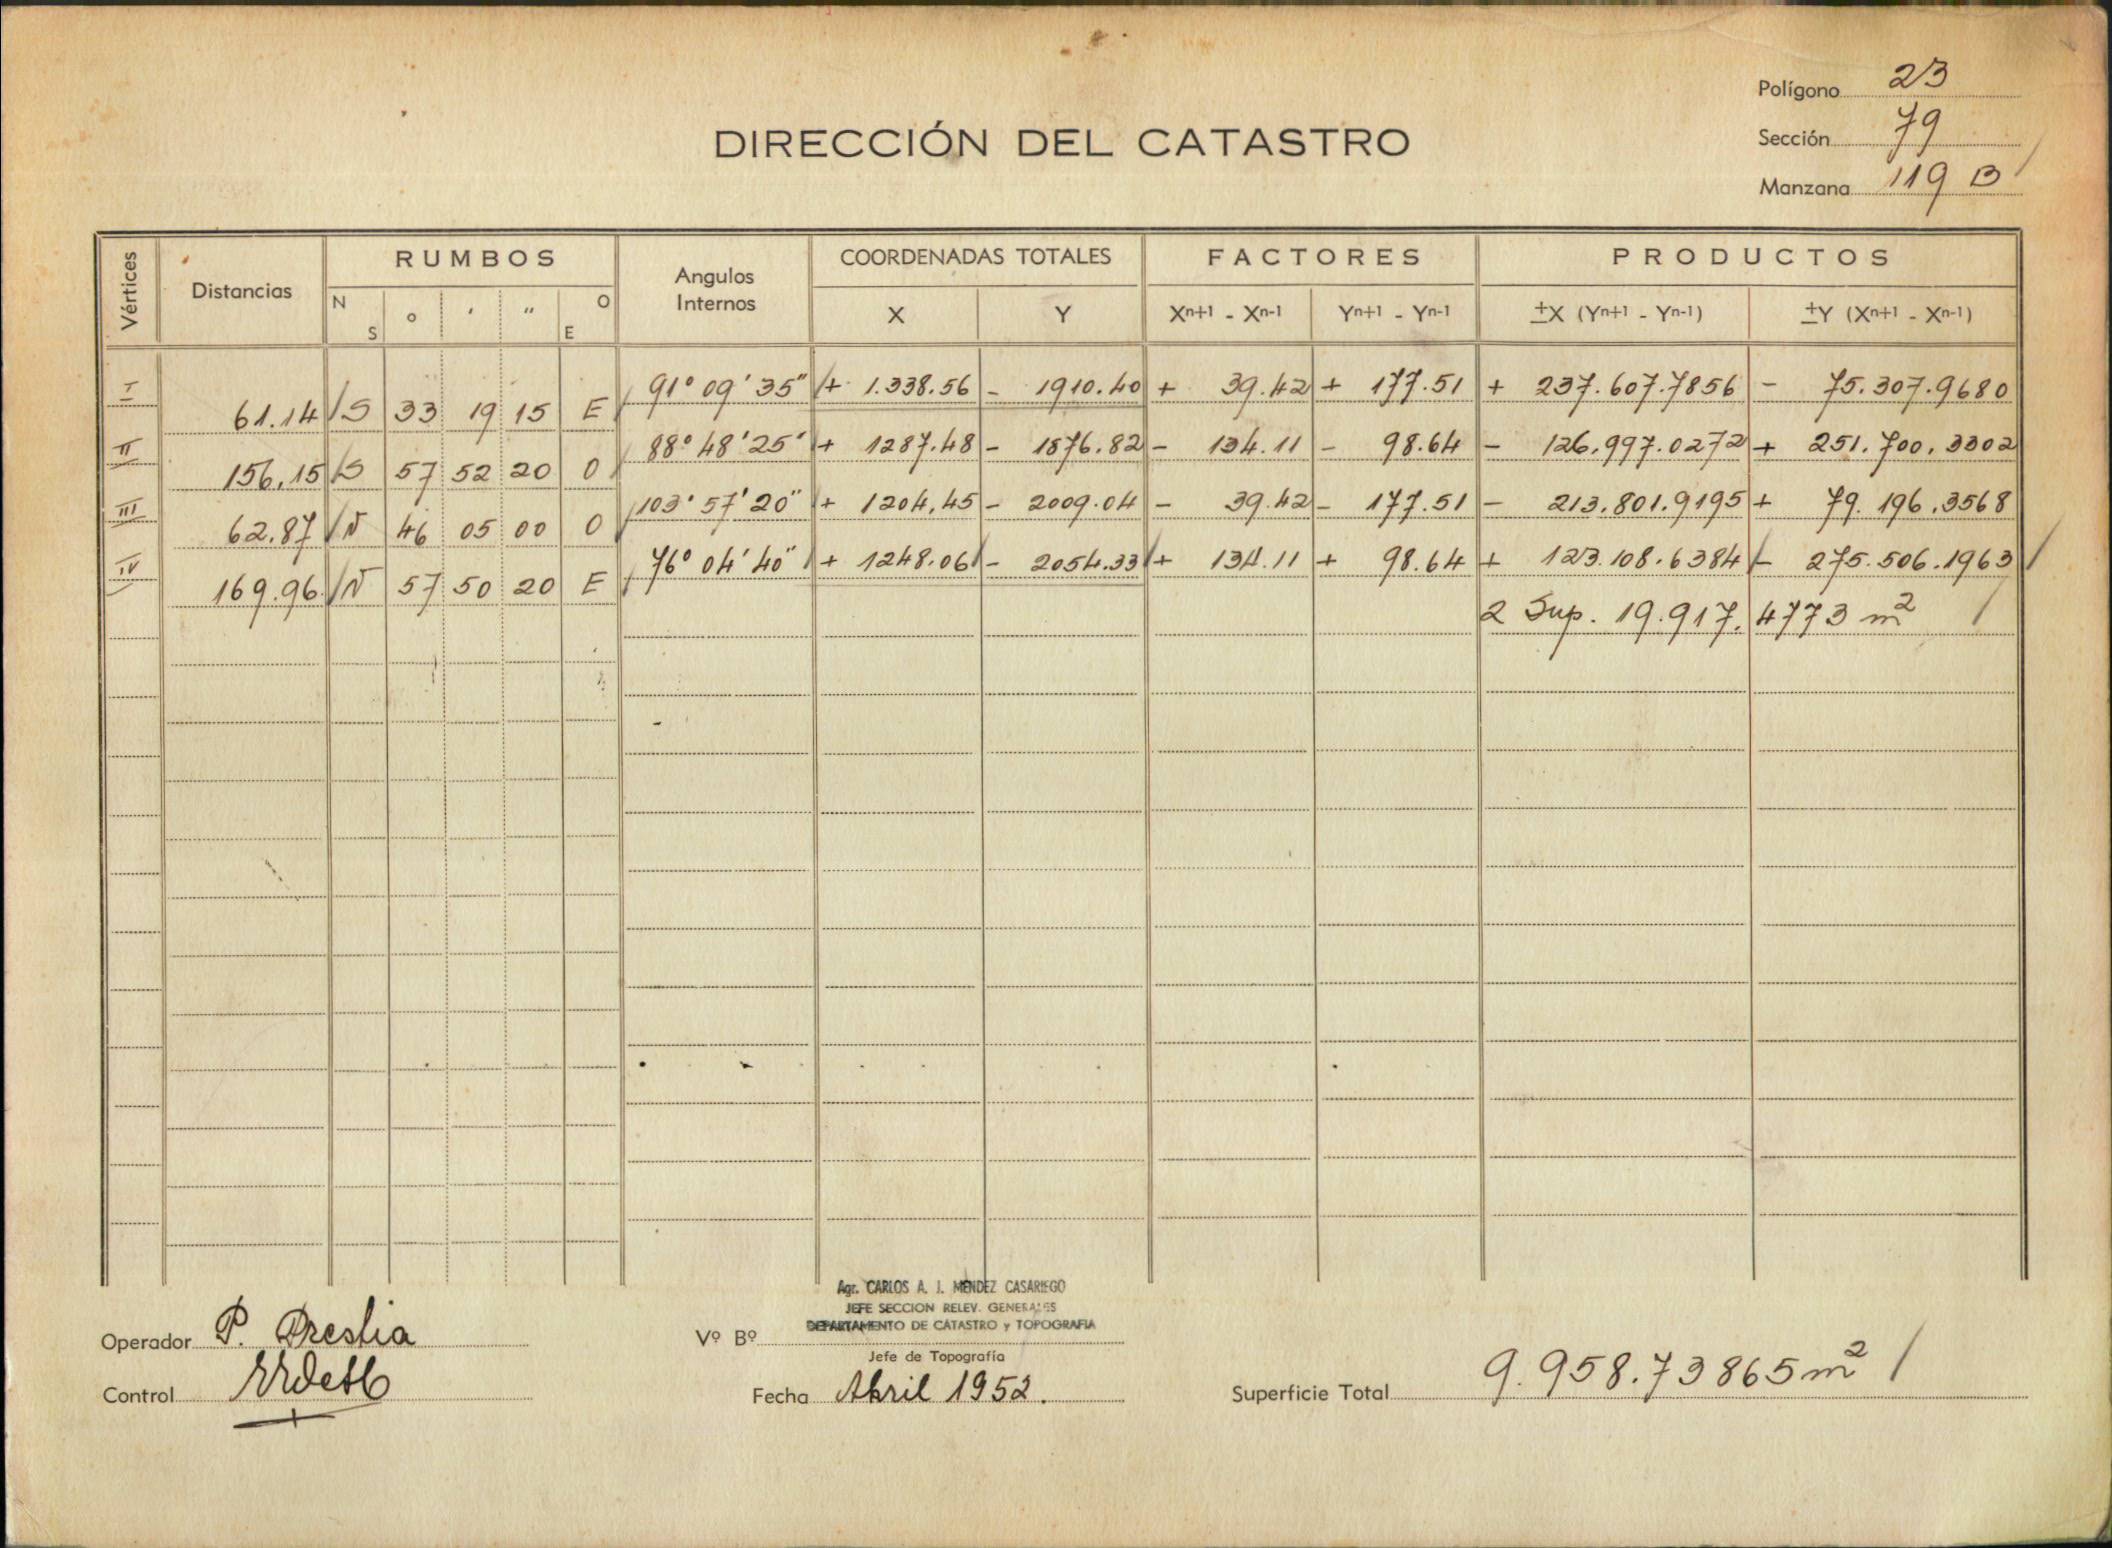 Polígono 23
DIRECCIÓN DEL CATASTRO
Sección 79
Manzana 119 B
Vértices Distancias RUMBOS Angulos Internos COORDENADAS TOTALES FACTORES PRODUCTOS
N S o ' " O E X Y Xn+1 - Xn-1 Yn+1 - Yn-1 ±X (Yn+1 - Yn-1) ±Y (Xn+1 - Xn-1)
I 91° 09' 35" + 1.338.56 - 1910.40 + 39.42 + 177.51 + 237.607.7856 - 75.307.9680
61.14 S 33 19 15 E
II 88° 48' 25" + 1287.48 - 1876.82 - 134.11 - 98.64 - 126.997.0272 + 251.700.3302
156.15 S 57 52 20 O
III 103° 57' 20" + 1204.45 - 2009.04 - 39.42 - 177.51 - 213.801.9195 + 79.196.3568
62.87 N 46 05 00 O
IV 76° 04' 40" + 1248.06 - 2054.33 + 134.11 + 98.64 + 123.108.6384 - 275.506.1963
169.96 N 57 50 20 E
2 Sup. 19.917.4773 m²
Agr. CARLOS A. J. MÉNDEZ CASARIEGO
JEFE SECCION RELEV. GENERALES
DEPARTAMENTO DE CATASTRO y TOPOGRAFIA
Operador P. Prestia
Vº Bº
Jefe de Topografía
Control
Fecha Abril 1952.
Superficie Total 9.958.73865 m²